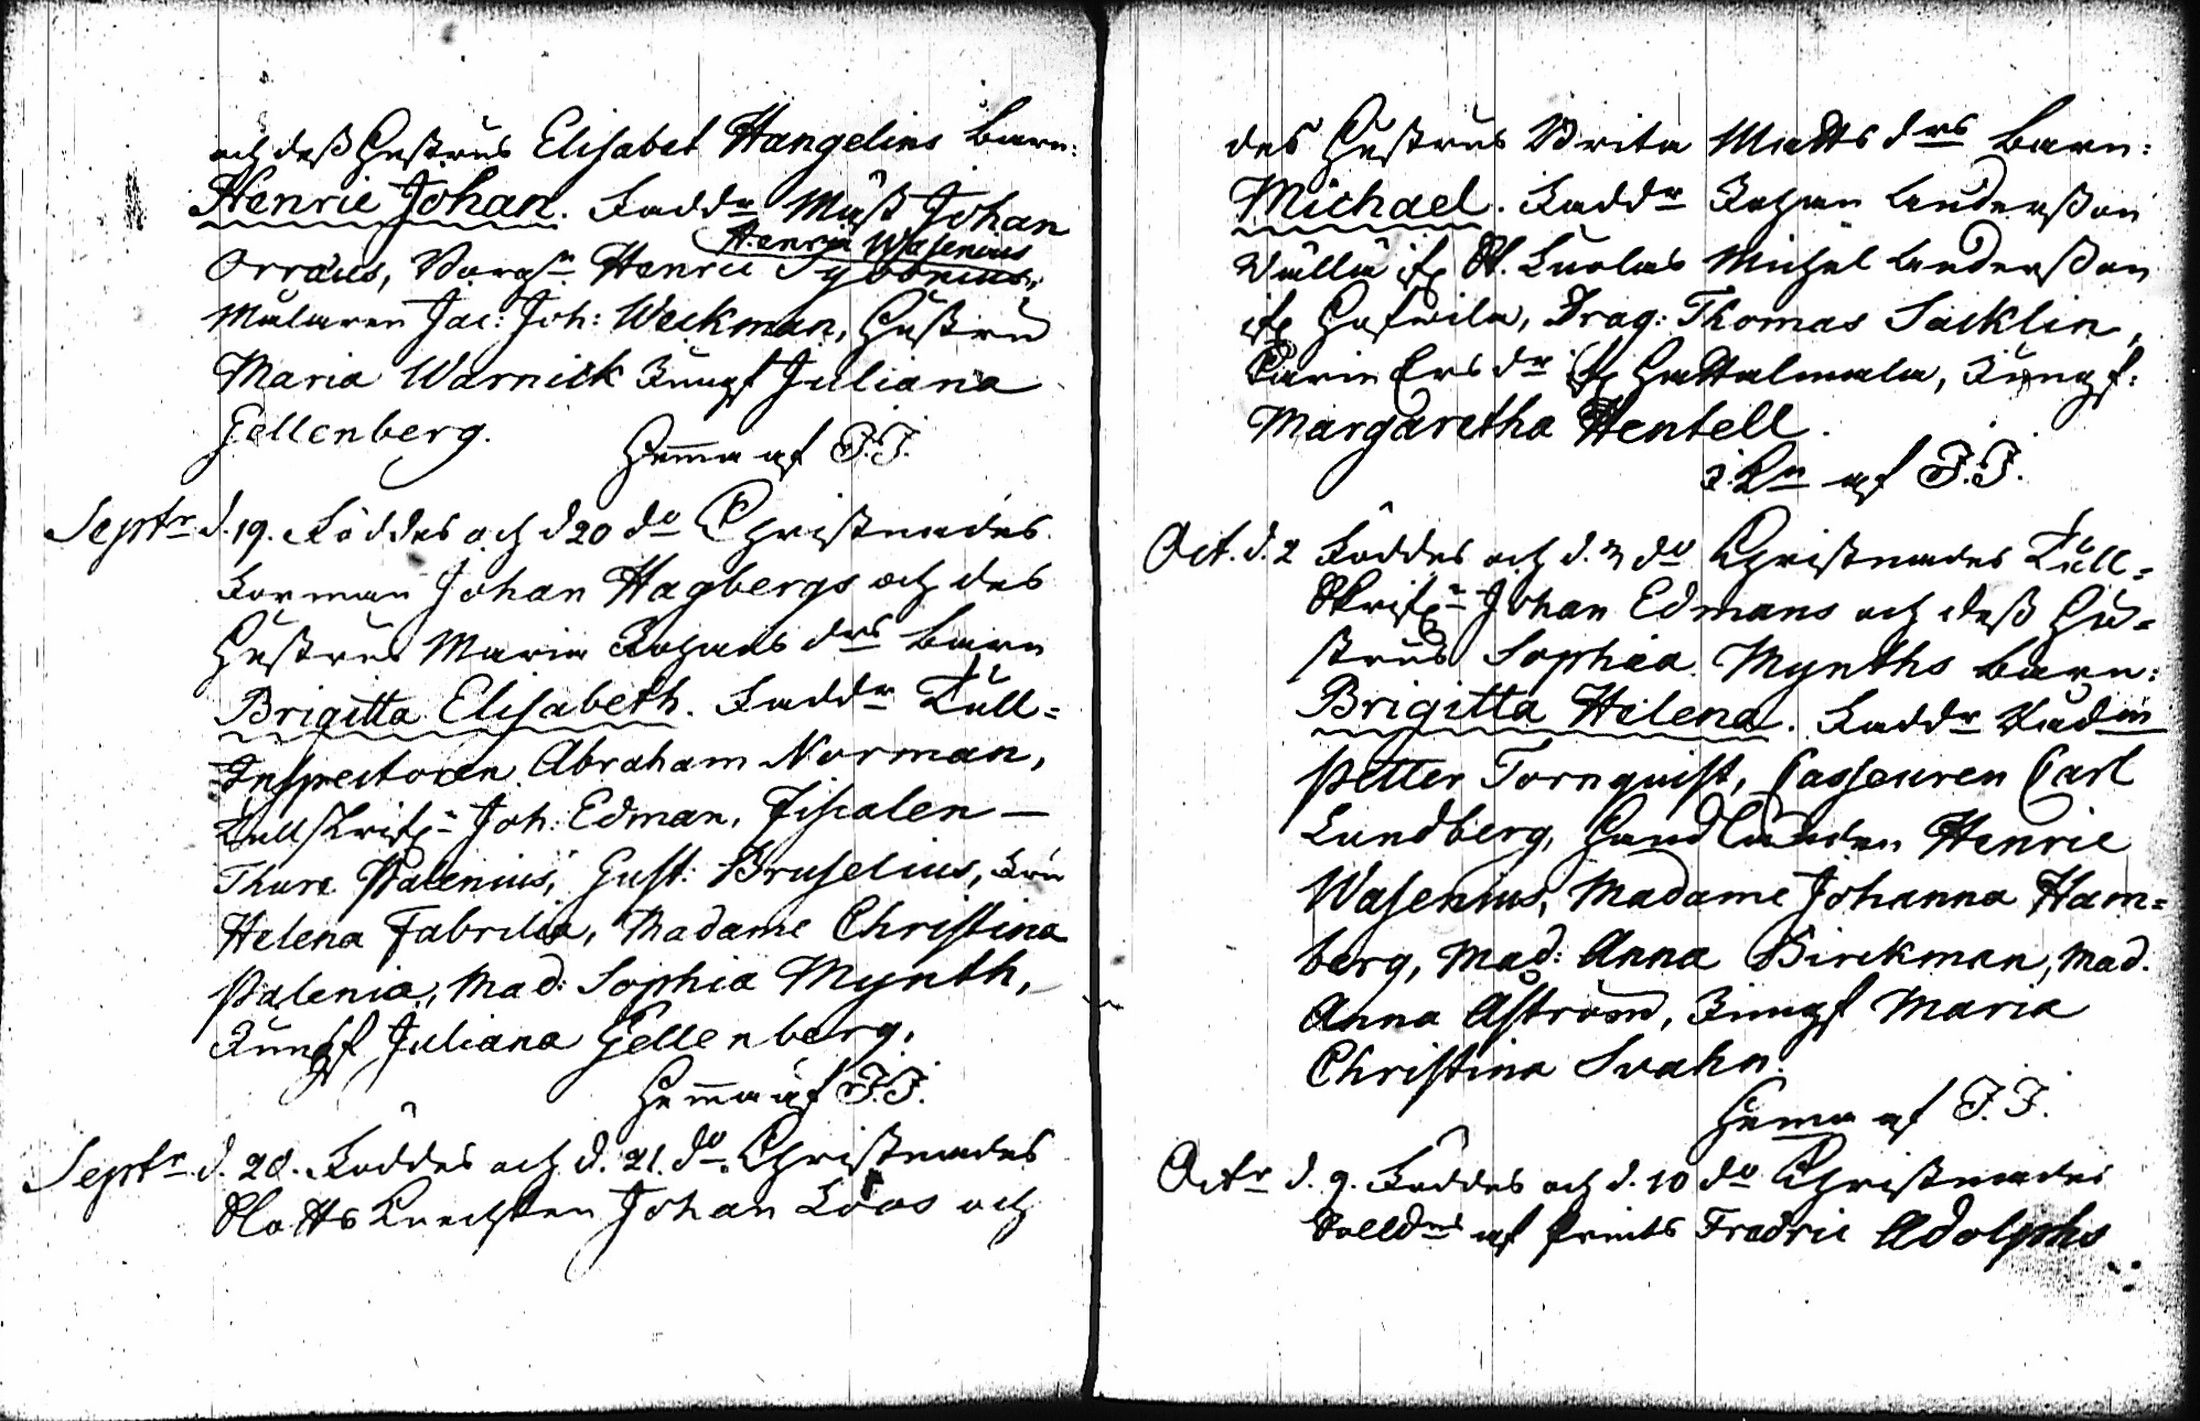 och deß Hustrus Elisabet Hangelins barn:
Henric Johan. Faddr Müß Johan
Henric Wasenius
Orræus, Borgn Henric
Målaren Jac: Joh: Weckman, Hustru
Maria Warnick Jungf Juliana
Gellenberg.
Hema af J.J.
Septr d. 19. Föddes och d 20 do Christnades
Forman Johan Hagbergs och des
Hustrus Maria Johans drs barn
Brigitta Elisabeth. Faddr Tull=
Inspectoren Abraham Norman,
Tullskrifn Joh: Edman, Fiscalen —
Thure Palenius, Gust: Bruselius, Fru
Helena Fabrilia, Madame Christina
Palenia, Mad: Sophia Mynth,
Jungf Juliana Gellenberg.
Hema af J.J.
Septr d. 20. Föddes och d. 21. do Christnades
Slotts Knechten Johan Loos och
des Hustrus Brita Matts drs barn:
Michael. Faddr Johan Andersson
ifr St. Michel Andersson
ifr Drag: Thomas Säcklin,
Carin Ers dr ifr Hattalmala, Jungf:
Margaretha Hentell.
i Kn af J.J.
Oct. d. 2 Föddes och d. 3 do Christnades Tull=
Skrifn Johan Edmans och deß Hu=
strus Sophia Mynths barn:
Brigitta Helena. Faddr Rådm
Petter Tornquist, Casseuren Carl
Lundberg, Handlanden Henric
Wasenius, Madame Johanna Ham=
berg, Mad: Anna Birckman, Mad.
Anna Aström, Jungf Maria
Christina Svahn.
Hema af J.J.
Octr d. 9. Föddes och d. 10 do Christnades
Solldns af Prints Fredric Adolphs